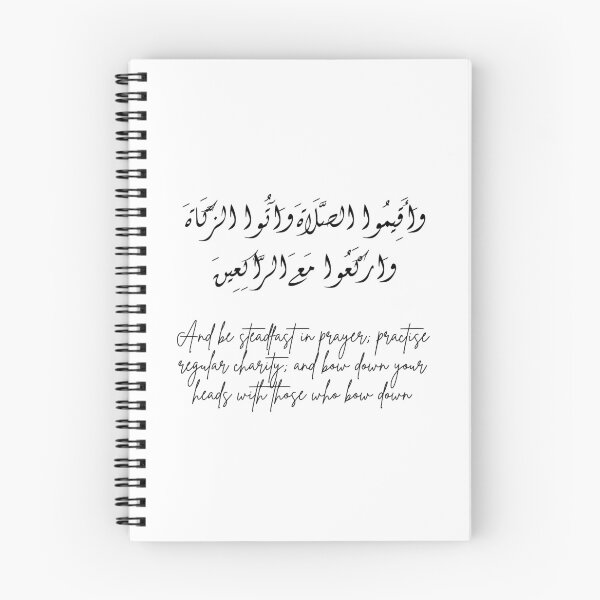 وَأَقِيمُوا الصَّلَاةَ وَآتُوا الزَّكَاةَ
وَارْكَعُوا مَعَ الرَّاكِعِينَ
And be steadfast in prayer; practise
regular charity; and bow down your
heads with those who bow down